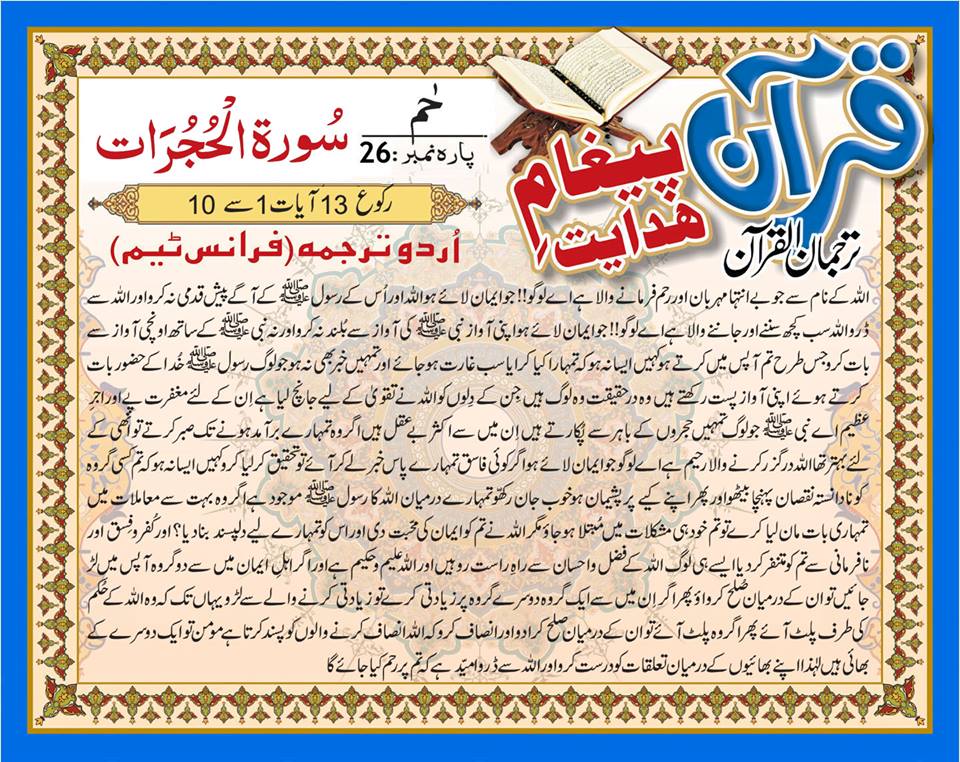 قرآن
پیغامِ
ھدایت
ترجمان القرآن
حٰمٓ
پارہ نمبر: 26
سُورۃ الْحُجُرَات
رکوع 13 آیات 1 سے 10
اُردو ترجمہ (فرانس ٹیم)
اللہ کے نام سے جو بے انتہا مہربان اور رحم فرمانے والا ہے اے لوگو!! جو ایمان لائے ہو اللہ اور اُس کے رسول ﷺ کے آگے پیش قدمی نہ کرو اور اللہ سے
ڈرو اللہ سب کچھ سننے اور جاننے والا ہے اے لوگو!! جو ایمان لائے ہو اپنی آواز نبی ﷺ کی آواز سے بلند نہ کرو اور نہ نبی ﷺ کے ساتھ اونچی آواز سے
بات کرو جس طرح تم آپس میں کرتے ہو کہیں ایسا نہ ہو کہ تمہارا کیا کرایا سب غارت ہو جائے اور تمہیں خبر بھی نہ ہو جو لوگ رسول ﷺ خُدا کے حضور بات
کرتے ہوئے اپنی آواز پست رکھتے ہیں وہ درحقیقت وہ لوگ ہیں جِن کے دِلوں کو اللہ نے تقویٰ کے لیے جانچ لیا ہے اِن کے لئے مغفرت ہے اور اجرِ
عظیم اے نبی ﷺ جو لوگ تمہیں حجروں کے باہر سے پُکارتے ہیں اِن میں سے اکثر بے عقل ہیں اگر وہ تمہارے برآمد ہونے تک صبر کرتے تو اُنھی کے
لئے بہتر تھا اللہ درگزر کرنے والا رحیم ہے اے لوگو جو ایمان لائے ہو اگر کوئی فاسق تمہارے پاس خبر لے کر آئے تو تحقیق کر لیا کرو کہیں ایسا نہ ہو کہ تم کسی گروہ
کو نادانستہ نقصان پہنچا بیٹھو اور پھر اپنے کیے پر پشیمان ہو خوب جان رکھو تمہارے درمیان اللہ کا رسول ﷺ موجود ہے اگر وہ بہت سے معاملات میں
تمہاری بات مان لیا کرے تو تم خود ہی مشکلات میں مُبتلا ہو جاؤ مگر اللہ نے تم کو ایمان کی محبت دی اور اس کو تمہارے لیے دلپسند بنا دیا؟ اور کُفر و فسق اور
نافرمانی سے تم کو متنفر کر دیا ایسے ہی لوگ اللہ کے فضل و احسان سے راہِ راست رو ہیں اور اللہ علیم و حکیم ہے اور اگر اہلِ ایمان میں سے دو گروہ آپس میں لڑ
جائیں تو ان کے درمیان صُلح کرواؤ پھر اگر اِن میں سے ایک گروہ دوسرے گروہ پر زیادتی کرے تو زیادتی کرنے والے سے لڑو یہاں تک کہ وہ اللہ کے حُکم
کی طرف پلٹ آئے پھر اگر وہ پلٹ آئے تو ان کے درمیان صلح کرا دو اور انصاف کرو کہ اللہ انصاف کرنے والوں کو پسند کرتا ہے مؤمن تو ایک دوسرے کے
بھائی ہیں لہٰذا اپنے بھائیوں کے درمیان تعلقات کو درست کرو اور اللہ سے ڈرو امیّد ہے کہ تم پر رحم کیا جائے گا